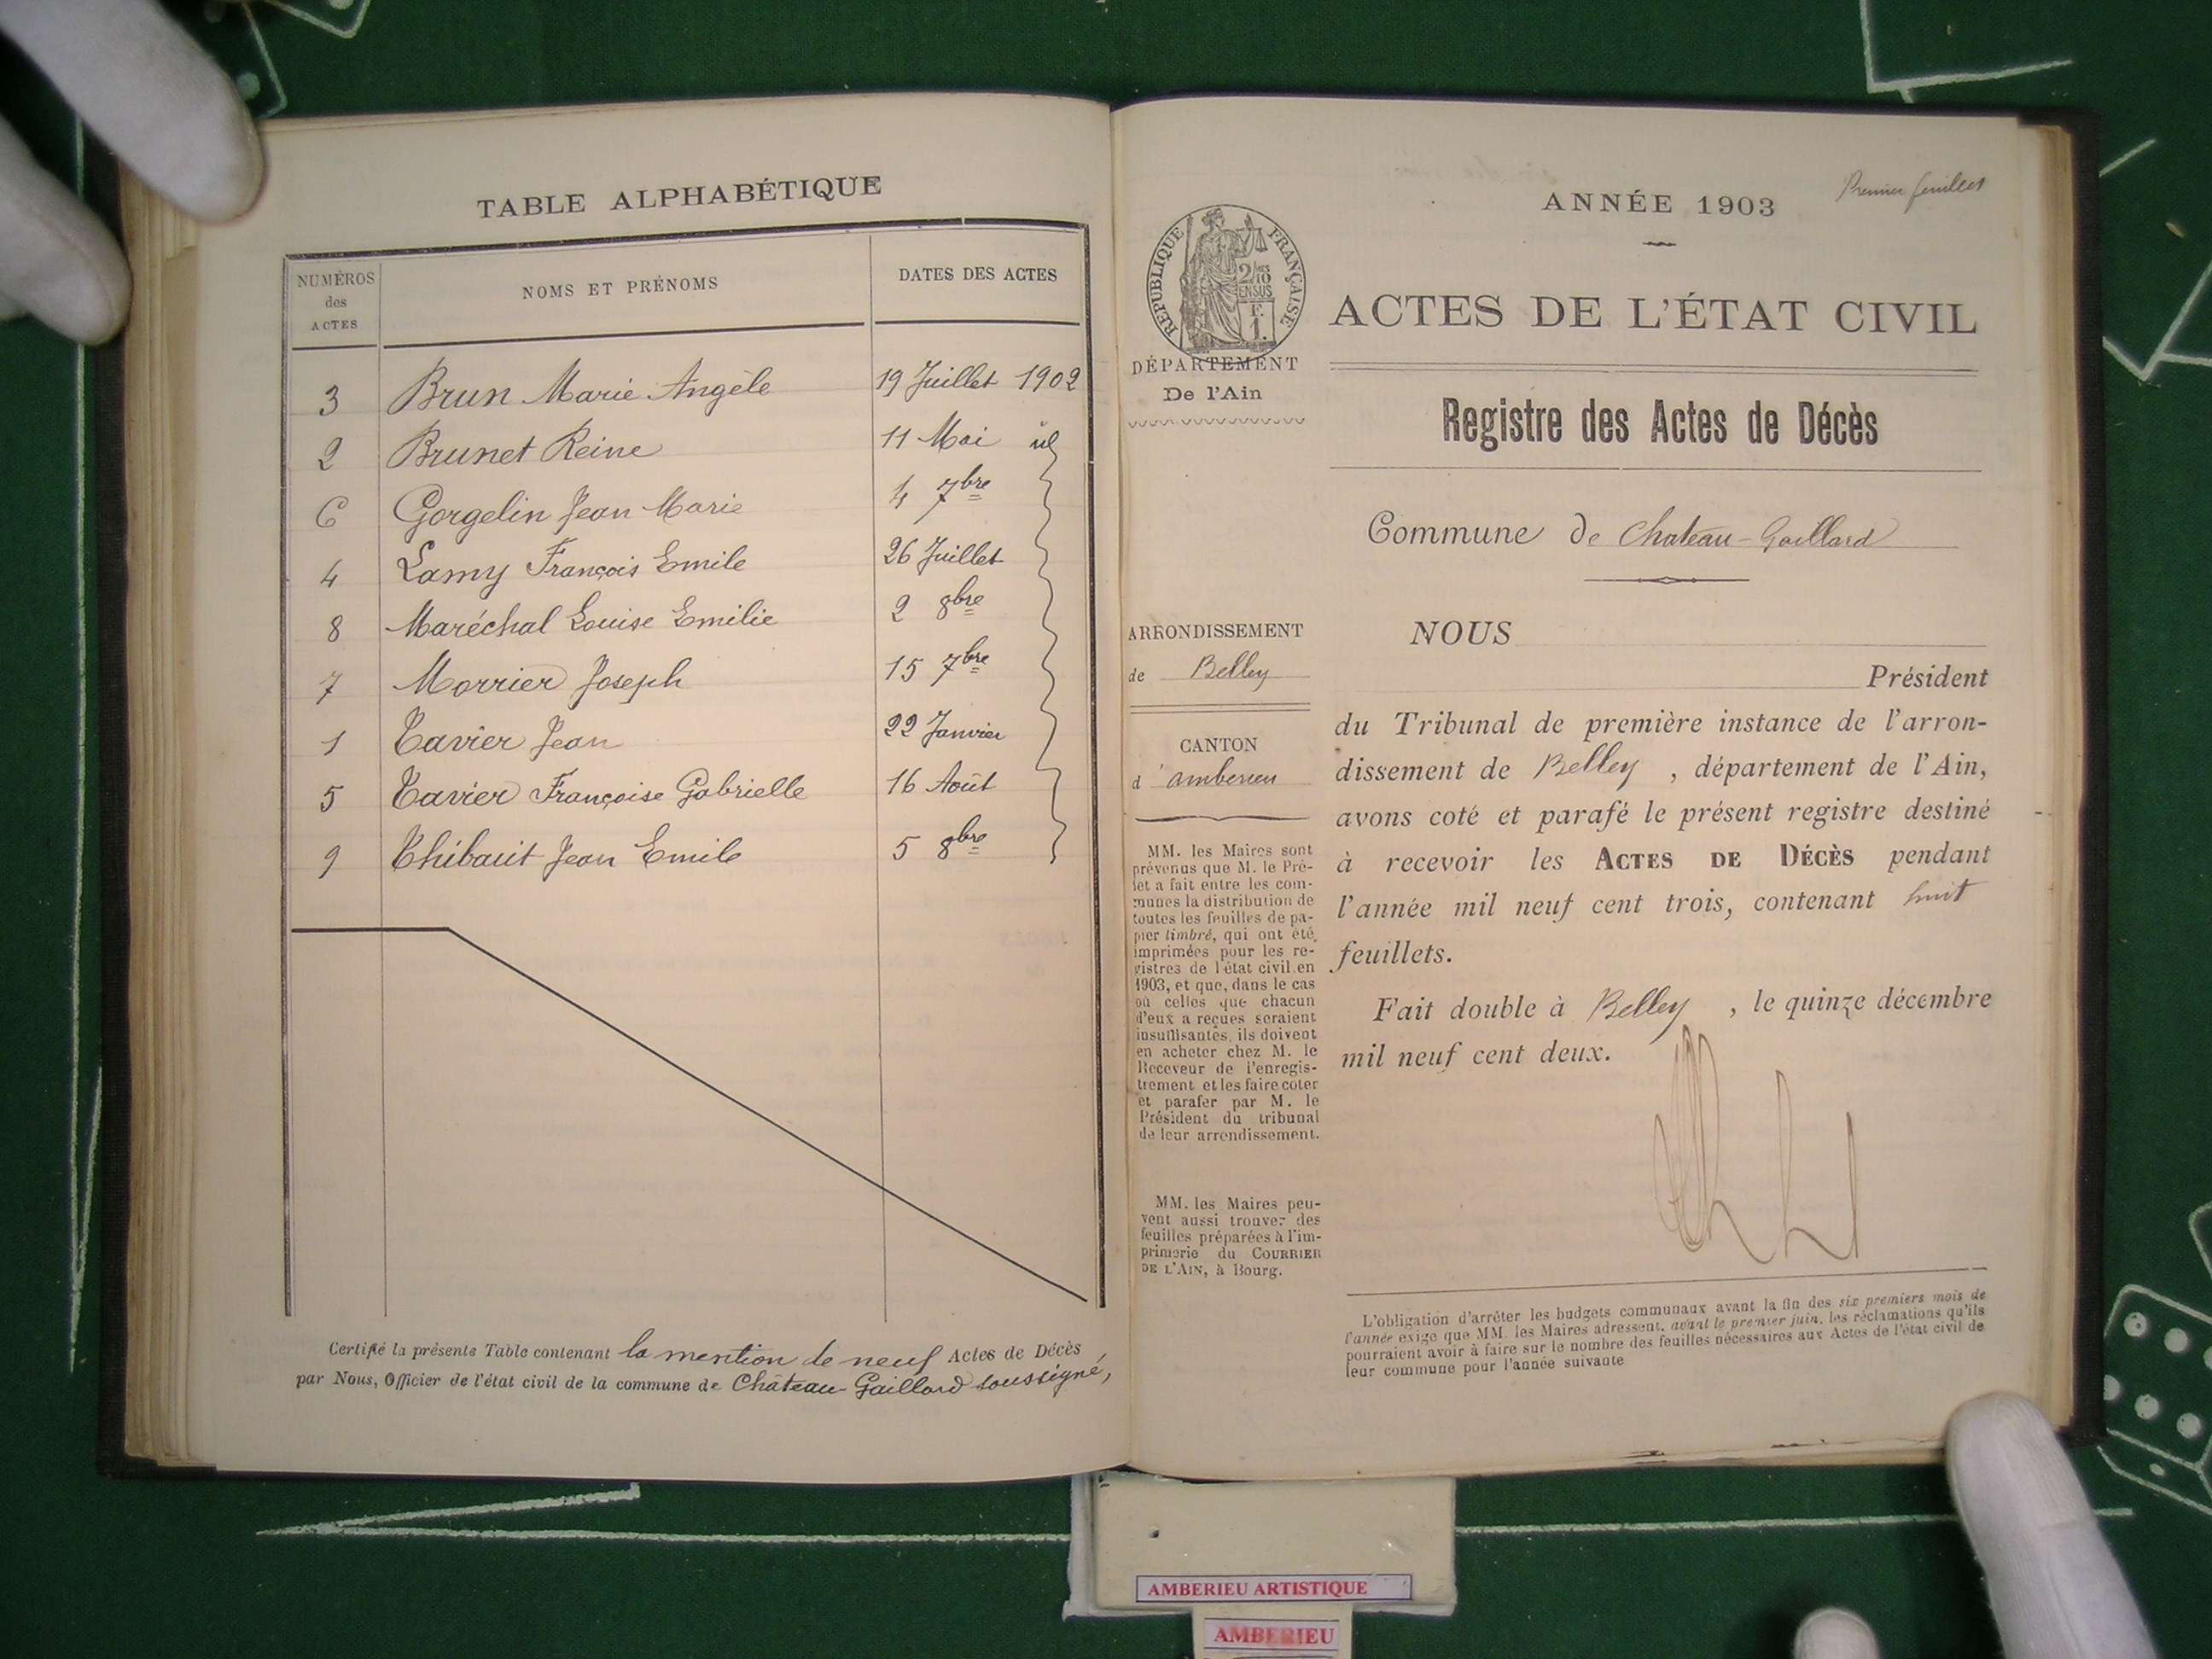 TABLE ALPHABÉTIQUE
NUMÉROS
des
ACTES
NOMS ET PRÉNOMS
DATES DES ACTES
3 Brun Marie Angèle 19 Juillet 1902
2 Brunet Reine 11 Mai id
6 Gorgelin Jean Marie 4 7bre
4 Lamy François Emile 26 Juillet
8 Maréchal Louise Emilie 2 8bre
7 Morrier Joseph 15 7bre
1 Tavier Jean 22 Janvier
5 Tavier Françoise Gabrielle 16 Août
9 Thibaut Jean Emile 5 8bre
Certifié la présente Table contenant la mention de neuf Actes de Décès
par Nous, Officier de l'état civil de la commune de Château-Gaillard soussigné,
Premier feuillet
ANNÉE 1903
RÉPUBLIQUE FRANÇAISE
2/10
EN SUS
1F.
DÉPARTEMENT
De l'Ain
ACTES DE L'ÉTAT CIVIL
Registre des Actes de Décès
Commune de Chateau-Gaillard
ARRONDISSEMENT
de Belley
CANTON
d'amberieu
MM. les Maires sont
prévenus que M. le Pré-
fet a fait entre les com-
munes la distribution de
toutes les feuilles de pa-
pier timbré, qui ont été
imprimées pour les re-
gistres de l'état civil en
1903, et que, dans le cas
où celles que chacun
d'eux a reçues seraient
insuffisantes, ils doivent
en acheter chez M. le
Receveur de l'enregis-
trement et les faire coter
et parafer par M. le
Président du tribunal
de leur arrondissement.
MM. les Maires peu-
vent aussi trouver des
feuilles préparées à l'im-
primerie du COURRIER
DE L'AIN, à Bourg.
NOUS
Président
du Tribunal de première instance de l'arron-
dissement de Belley , département de l'Ain,
avons coté et parafé le présent registre destiné
à recevoir les ACTES DE DÉCÈS pendant
l'année mil neuf cent trois, contenant huit
feuillets.
Fait double à Belley , le quinze décembre
mil neuf cent deux.
L'obligation d'arrêter les budgets communaux avant la fin des six premiers mois de
l'année exige que MM. les Maires adressent, avant le premier juin, les réclamations qu'ils
pourraient avoir à faire sur le nombre des feuilles nécessaires aux Actes de l'état civil de
leur commune pour l'année suivante
AMBERIEU ARTISTIQUE
AMBERIEU